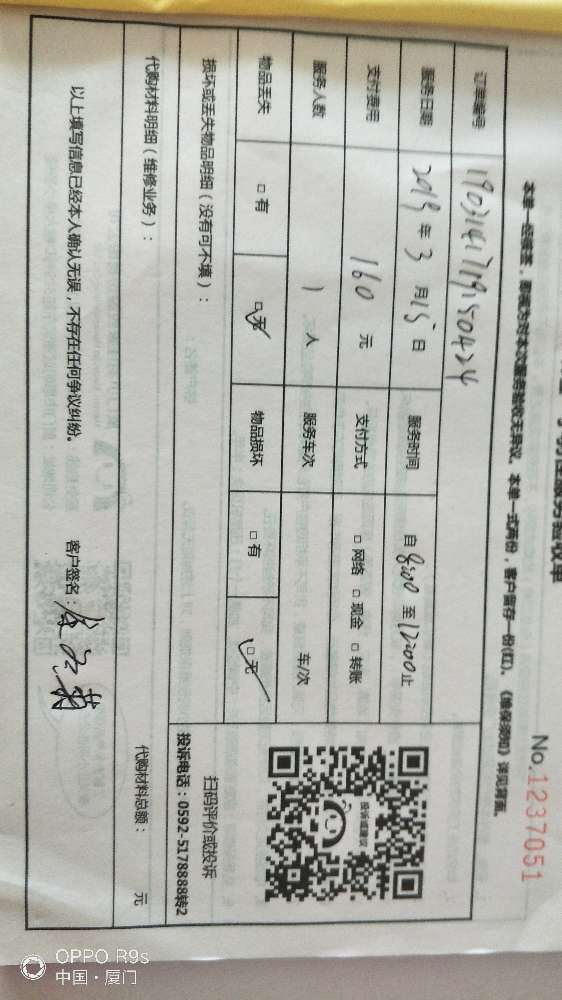 服务验收单
No.1237051
本单一经签签，即视为对本次服务验收无异议。本单一式两份，客户留存一份(红)。《维保须知》详见背面。
订单编号 1903141719150424
服务日期 2019年3月15日 服务时间 自8:00至12:00止
支付费用 160元 支付方式 □网络 □现金 □转账
服务人数 1人 服务车次 车/次
物品丢失 □有 □无 物品损坏 □有 □无
扫码评价或投诉
投诉电话：0592-5178888转2
损坏或丢失物品明细（没有可不填）：
代购材料明细（维修业务）：
代购材料总额： 元
以上填写信息已经本人确认无误，不存在任何争议纠纷。 客户签名：
OPPO R9s
中国·厦门